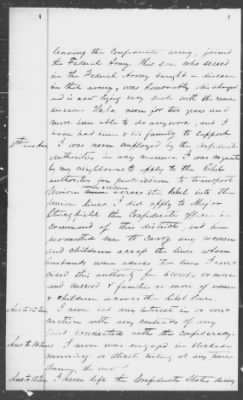 leaving the Confederate army, joined
the Federal Army. This son who served
in the Federal Army caught a disease
in that army, was honorably discharged
and is now lying very sick with the same
disease. Has been for two years and
more been able to do any work, and I
have had him & his family to support
I was never employed by the Confederate
Authorities in any manner. I was requested
by my neighbours to apply to the rebel
authorities for permission to transport
Union across the rebel into the
Union lines. I did apply to Major
the Confederate Officer in
command of this district, and he
permitted me to carry any women
and children except the ones whose
husbands were across the lines. I exer-
cised this authority for weeks or more
and carried families or more of women
& children across the rebel lines.
Ans to 15 Inter I never had any interest in or con-
nection with any
connected with the confederacy.
Ans to 16 Inter I never was engaged in blockade
running or illicit trading at any time
during the war.
Ans to 17 Inter I never left the Confederate States during